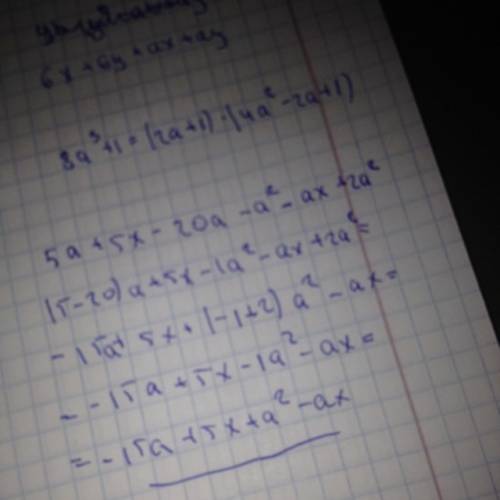 6x + 6y + ax + ay
8a³+1 = (2a+1) · (4a² - 2a+1)
5a + 5x - 20a - a² - ax + 2a²
(5-20) a + 5x - 1a² - ax + 2a² =
- 15a + 5x + (-1+2) a² - ax =
= -15a + 5x - 1a² - ax =
= -15a + 5x + a² - ax